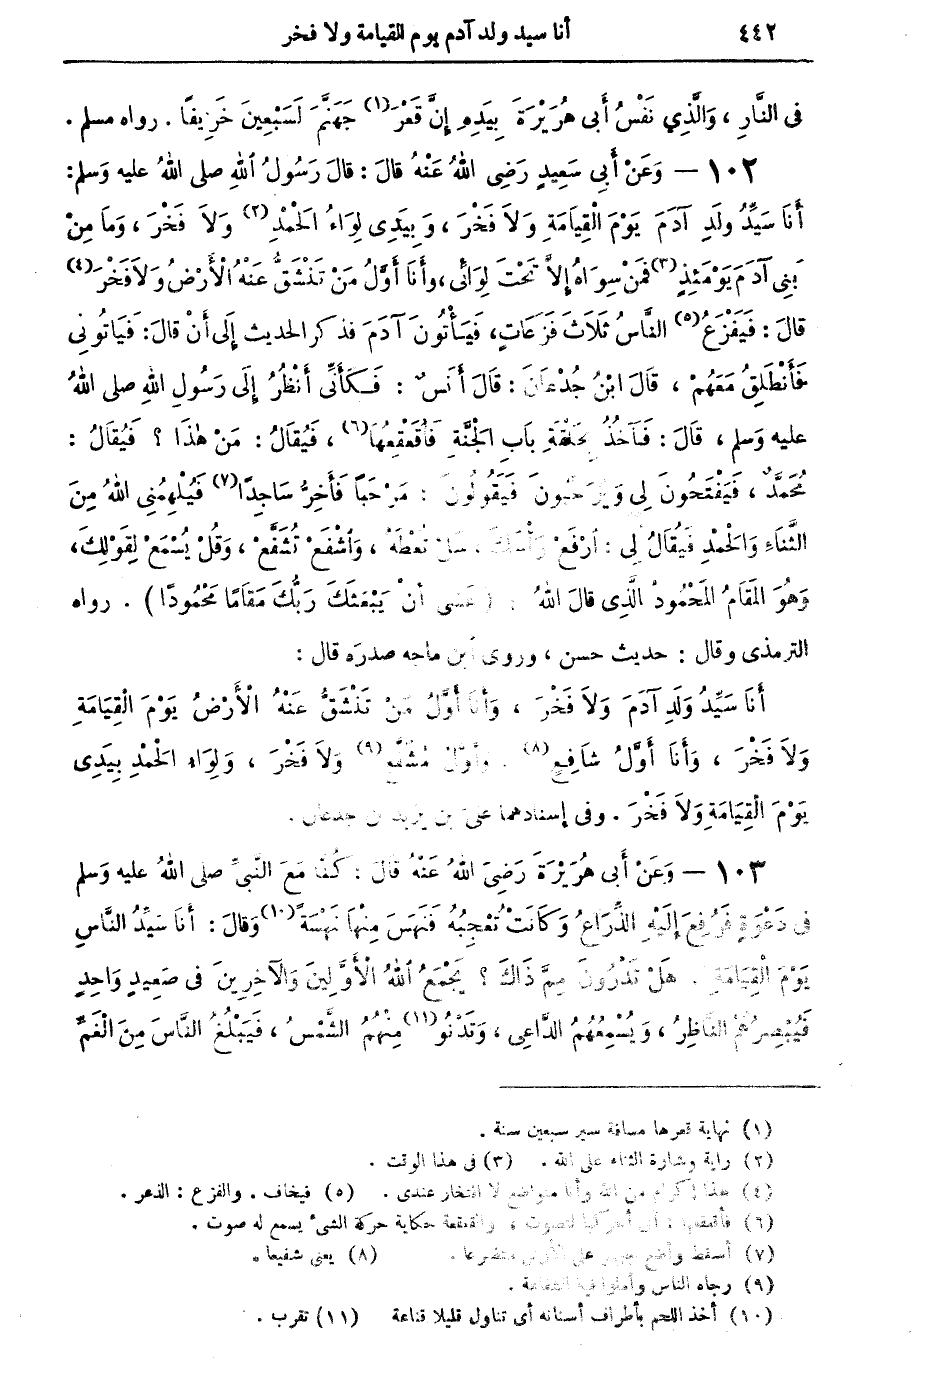 ٤٤٢ أنا سيد ولد آدم يوم القيامة ولا فخر
فى النَّارِ ، وَالَّذِي نَفْسُ أَبى هُرَيْرَةَ بِيَدِهِ إِنَّ قَعْرَ(١) جَهَنَّمَ لَسَبْعِينَ خَرِيفًا . رواه مسلم .
١٠٢ — وَعَنْ أَبِي سَعِيدٍ رَضِىَ اللهُ عَنْهُ قَالَ : قالَ رَسُولُ اللهِ صلى اللهُ عليه وَسلم :
أَنَا سَيِّدُ ولَدِ آدَمَ يَوْمَ الْقِيَامَةِ وَلاَ فَخْرَ ، وَبِيَدِى لِوَاءُ الْحَمْدِ(٢) وَلاَ فَخْرَ ، وَمَا مِنْ
بَنِى آدَمَ يَوْمَئِذٍ(٣) فَمَنْ سِوَاهُ إِلاَّ تَحْتَ لِوَائِى ، وأَنَا أَوَّلُ مَنْ تَنْشَقُّ عَنْهُ الْأَرْضُ وَلاَ فَخْرَ(٤)
قالَ : فَيَفْزَعُ(٥) النَّاسُ ثَلَاثَ فَزَعَاتٍ، فَيَأْتُونَ آدَمَ فذكر الحديث إِلَى أَنْ قالَ: فَيَأتُونِى
فَأَنْطَلِقُ مَعَهُمْ ، قَالَ ابْنُ جُدْعَانَ : قَالَ أَنَسٌ : فَكَأَنِّى أَنْظُرُ إِلَى رَسُولِ اللهِ صلى اللهُ
عليه وَسلم ، قَالَ : فَآخُذُ بِحَلْقَةِ بَابِ الْجَنَّةِ فَأُقَعْقِعُهَا(٦) ، فَيُقَالُ : مَنْ هٰذَا ؟ فَيُقَالُ :
مُحَمَّدٌ ، فَيَفْتَحُونَ لِى وَيُرَحِّبُونَ فَيَقُولُونَ : مَرْحَبًا فَأَخِرُّ سَاجِدًا(٧) فَيُلْهِمُنِى اللهُ مِنَ
الثَّنَاءِ وَالْحَمْدِ فَيُقَالُ لِى : ارْفَعْ رَأْسَكَ ، سَلْ تُعْطَهُ ، وَاشْفَعْ تُشَفَّعْ ، وَقُلْ يُسْمَعْ لِقَوْلِكَ ،
وَهُوَ الْمَقَامُ الْمَحْمُودُ الَّذِى قَالَ اللهُ : ( عَسَى أَنْ يَبْعَثَكَ رَبُّكَ مَقَامًا مَحْمُودًا ) . رواه
الترمذى وقال : حديث حسن ، وروى ابن ماجه صدرَه قال :
أَنَا سَيِّدُ وَلَدِ آدَمَ وَلاَ فَخْرَ ، وَأَنَا أَوَّلُ مَنْ تَنْشَقُّ عَنْهُ الْأَرْضُ يَوْمَ الْقِيَامَةِ
وَلاَ فَخْرَ ، وَأَنَا أَوَّلُ شَافِعٍ(٨) . وأَوَّلُ مُشَفَّعٍ(٩) وَلاَ فَخْرَ ، وَلِوَاءُ الْحَمْدِ بِيَدِى
يَوْمَ الْقِيَامَةِ وَلاَ فَخْرَ . وفى إسنادهما علىّ بن يزيد بن جدعان .
١٠٣ — وَعَنْ أَبى هُرَيْرَةَ رَضِىَ اللهُ عَنْهُ قَالَ : كُنَّا مَعَ النَّبىِّ صلى اللهُ عليه وَسلم
فِى دَعْوَةٍ فَرُفِعَ إِلَيْهِ الذِّرَاعُ وَكَانَتْ تُعْجِبُهُ فَنَهَسَ مِنْهَا نَهْسَةً(١٠) وَقَالَ : أَنَا سَيِّدُ النَّاسِ
يَوْمَ الْقِيَامَةِ . هَلْ تَدْرُونَ مِمَّ ذَاكَ ؟ يَجْمَعُ اللهُ الْأَوَّلِينَ وَالْآخِرِينَ فى صَعِيدٍ وَاحِدٍ
فَيُبْصِرُهُمُ النَّاظِرُ ، وَيُسْمِعُهُمُ الدَّاعِى ، وَتَدْنُو(١١) مِنْهُمُ الشَّمْسُ ، فَيَبْلُغُ النَّاسَ مِنَ الْغَمِّ
(١) نهاية قعرها مسافة سير سبعين سنة .
(٢) راية وشارة الثناء على الله . (٣) فى هذا الوقت .
(٤) هذا إكرام من الله وأنا متواضع لا افتخار عندى . (٥) فيخاف . والفزع : الذعر .
(٦) فأقعقعها : أى أحركها لتصوت ، والقعقعة حكاية حركة الشىء يسمع له صوت .
(٧) أسقط وأضع على الأرض متضرعا . (٨) يعنى شفيعا .
(٩) رجاه الناس وأملوا فيه الشفاعة .
(١٠) أخذ اللحم بأطراف أسنانه أى تناول قليلا قناعة (١١) تقرب .